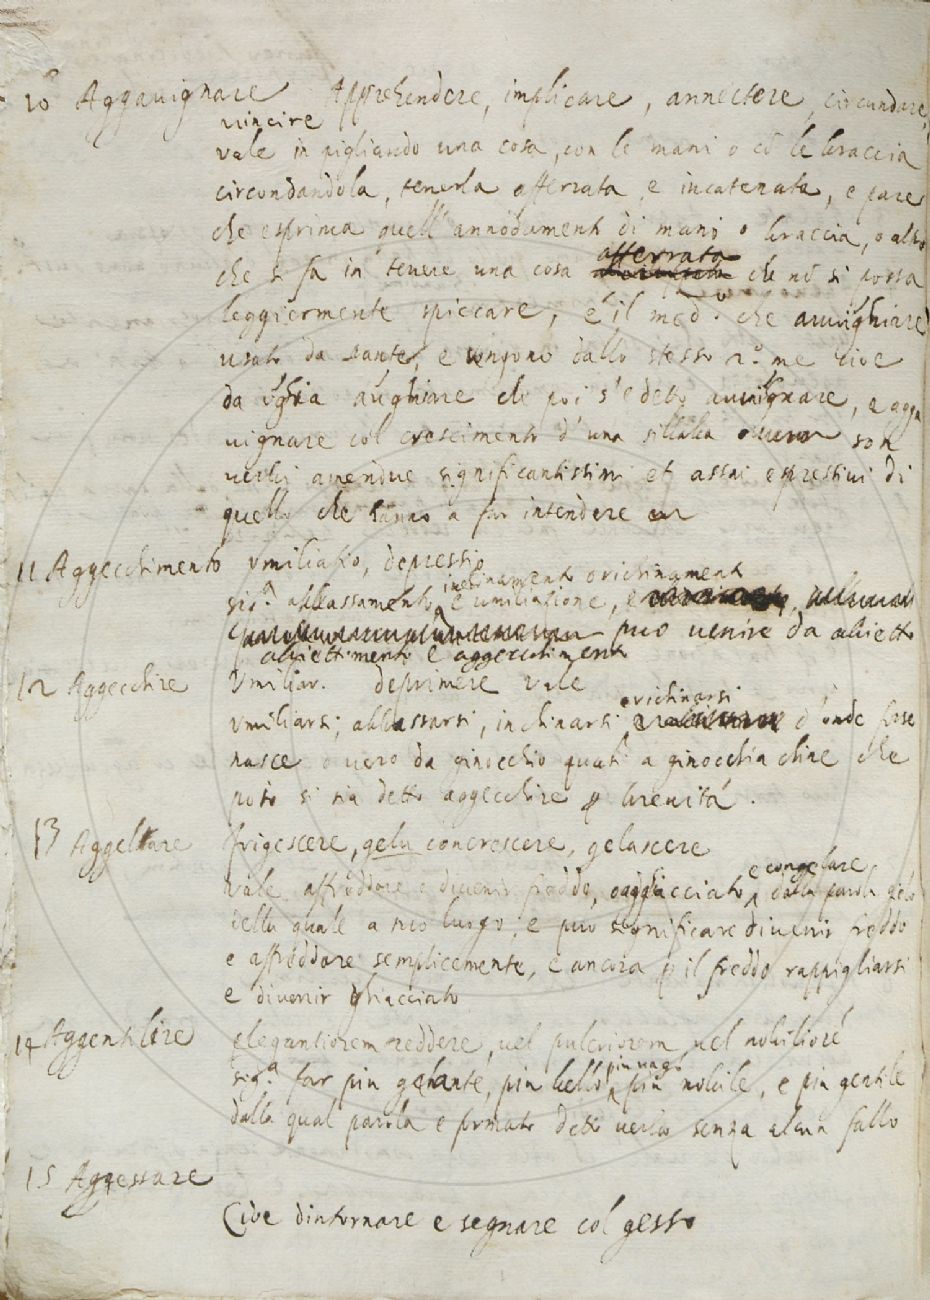 10 Aggauignare Apprehendere, implicare, annectere, circundare,
uincire
uale in pigliando una cosa, con le mani o cõ le braccia
circondandola, tenerla afferrata e incatenata, e pare
che esprima quell'annodamento di mani o braccia, o altro
che si fa in tenere una cosa afferrata che nõ si possa
leggiermente spiccare, e il med.º che auuighiare
usato da Dante, e uengono dallo stesso cioe
da che poi s'e detto auuignare, e agga
uignare col crescimento d'una sillaba son
uerbi amendue significantissimi et assai espressiui di
quello che hanno a far intendere
11 Aggecchimento Vmiliatio, depressio
inclinamento o richinamento
sig.ª abbassamento, e umiliatione, può uenire da abietto
abiettimento e aggecchimento
12 Aggecchire Vmiliar. deprimere vale
e richinarsi
vmiliarsi, abbassarsi, inchinarsi d'onde forse
nasce ouero da ginocchio quasi a ginocchia chine che
poto si sia detto aggecchire p breuità.
13 Aggelare frigescere, gelu concrescere, gelascere
e congelare
vale affreddare e diuenir freddo, o agghiacciato, dalla parola gelo
della quale a suo luogo, e puo significare diuenir freddo
e affreddare semplicemente, e ancora p il freddo rappigliarsi
e diuenir ghiacciato
14 Aggentilire elegantiorem reddere, uel pulcriorem uel nobilioré
più uago
sig.ª far piu galante, piu bello, piu nobile, e piu gentile
dalla qual parola e formato detto uerbo senza alcun fallo
15 Aggessare
Cioe dintornare e segnare col gesso